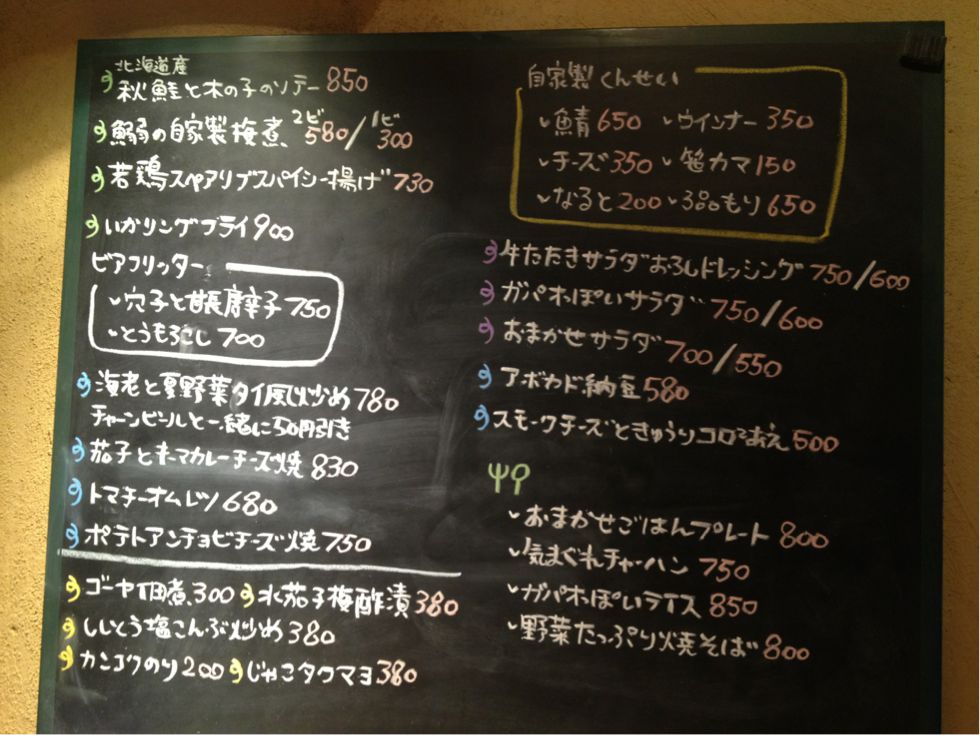 北海道産
秋鮭と木の子のソテー 850
鰯の自家製梅煮 2ビ580/1ビ300
若鶏スペアリブスパイシー揚げ 730
いかリングフライ 900
ビアフリッター
穴子と甘長唐辛子 750
とうもろこし 700
海老と夏野菜タイ風炒め 780
チャーンビールと一緒に50円引き
茄子とキーマカレーチーズ焼 830
トマチーオムレツ 680
ポテトアンチョビチーズ焼 750
ゴーヤ佃煮 300 水茄子梅酢漬 380
ししとう塩こんぶ炒め 380
カンゴクのり 200 じゃこタクマヨ 380
自家製くんせい
鯖 650 ウインナー 350
チーズ 350 笹カマ 150
なると 200 3品もり 650
牛たたきサラダおろしドレッシング 750/600
ガパオっぽいサラダ 750/600
おまかせサラダ 700/550
アボカド納豆 580
スモークチーズときゅうりコロコロあえ 500
おまかせごはんプレート 800
気まぐれチャーハン 750
ガパオっぽいライス 850
野菜たっぷり焼そば 800